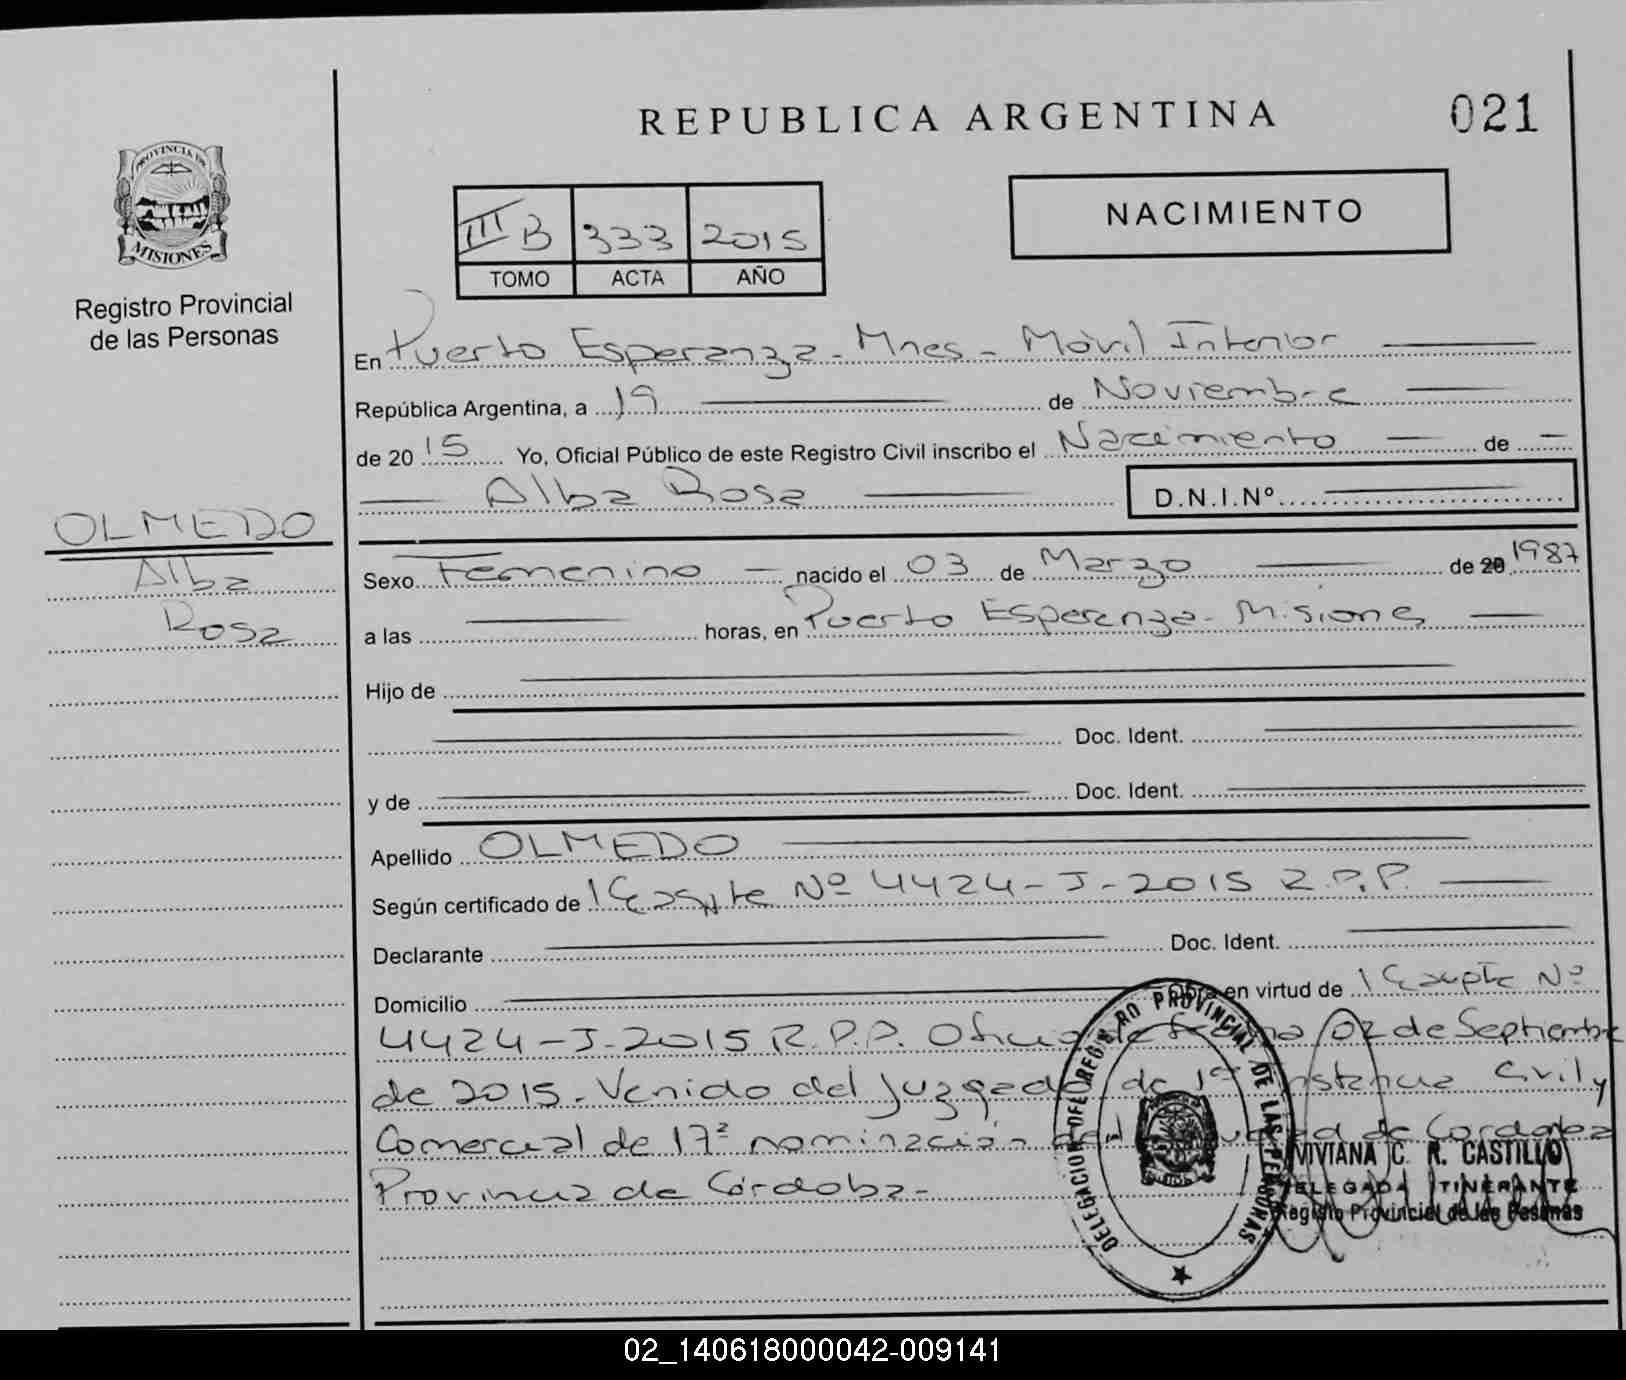 REPUBLICA ARGENTINA
021
PROVINCIA DE
MISIONES
Registro Provincial
de las Personas
III B 333 2015
TOMO ACTA AÑO
NACIMIENTO
En Puerto Esperanza - Mnes - Móvil Interior
República Argentina, a 19 de Noviembre
de 20 15 Yo, Oficial Público de este Registro Civil inscribo el Nacimiento de
Alba Rosa D.N.I.Nº
OLMEDO
Alba
Rosa
Sexo Femenino nacido el 03 de Marzo de 20 1987
a las horas, en Puerto Esperanza - Misiones
Hijo de
Doc. Ident.
y de Doc. Ident.
Apellido OLMEDO
Según certificado de Nº 4424-J-2015 R.P.P.
Declarante Doc. Ident.
Domicilio Obra en virtud de Nº
4424-J-2015 R.P.P. Oficio de fecha 02 de Septiembre
de 2015. Venido del Juzgado de 1ra Instancia Civil y
Comercial de 17ª nominación de Cordoba
Provincia de Córdoba-
VIVIANA C. R. CASTILLO
DELEGADA ITINERANTE
Registro Provincial de las Personas
02_140618000042-009141